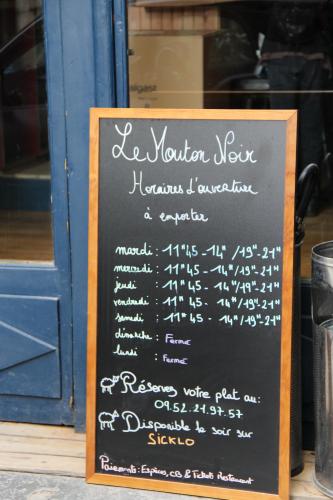 Le Mouton Noir
Horaires d'ouverture
à emporter
mardi : 11h45 - 14h / 19h - 21h
mercredi : 11h45 - 14h / 19h - 21h
jeudi : 11h45 - 14h / 19h - 21h
vendredi : 11h45 - 14h / 19h - 21h
samedi : 11h45 - 14h / 19h - 21h
dimanche : Fermé
lundi : Fermé
Réservez votre plat au :
09.52.21.97.57
Disponible le soir sur
SICKLO
Paiements : Espèces, CB & Tickets Restaurant